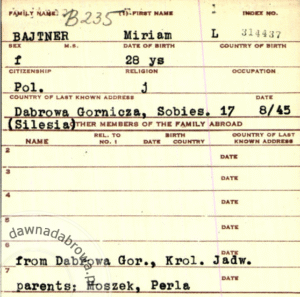 FAMILY NAME B235 (1)-FIRST NAME INDEX NO.
BAJTNER Miriam L 314437
SEX M.S. DATE OF BIRTH COUNTRY OF BIRTH
f 28 ys
CITIZENSHIP RELIGION OCCUPATION
Pol. j
COUNTRY OF LAST KNOWN ADDRESS DATE
Dabrowa Gornicza, Sobies. 17 8/45
(Silesia) OTHER MEMBERS OF THE FAMILY ABROAD
NAME REL. TO NO. 1 BIRTH DATE COUNTRY COUNTRY OF LAST KNOWN ADDRESS
2 DATE
3 DATE
4 DATE
5 DATE
6 DATE
from Dabrowa Gor., Krol. Jadw.
7 DATE
parents: Moszek, Perla
dawnadabrowa.p